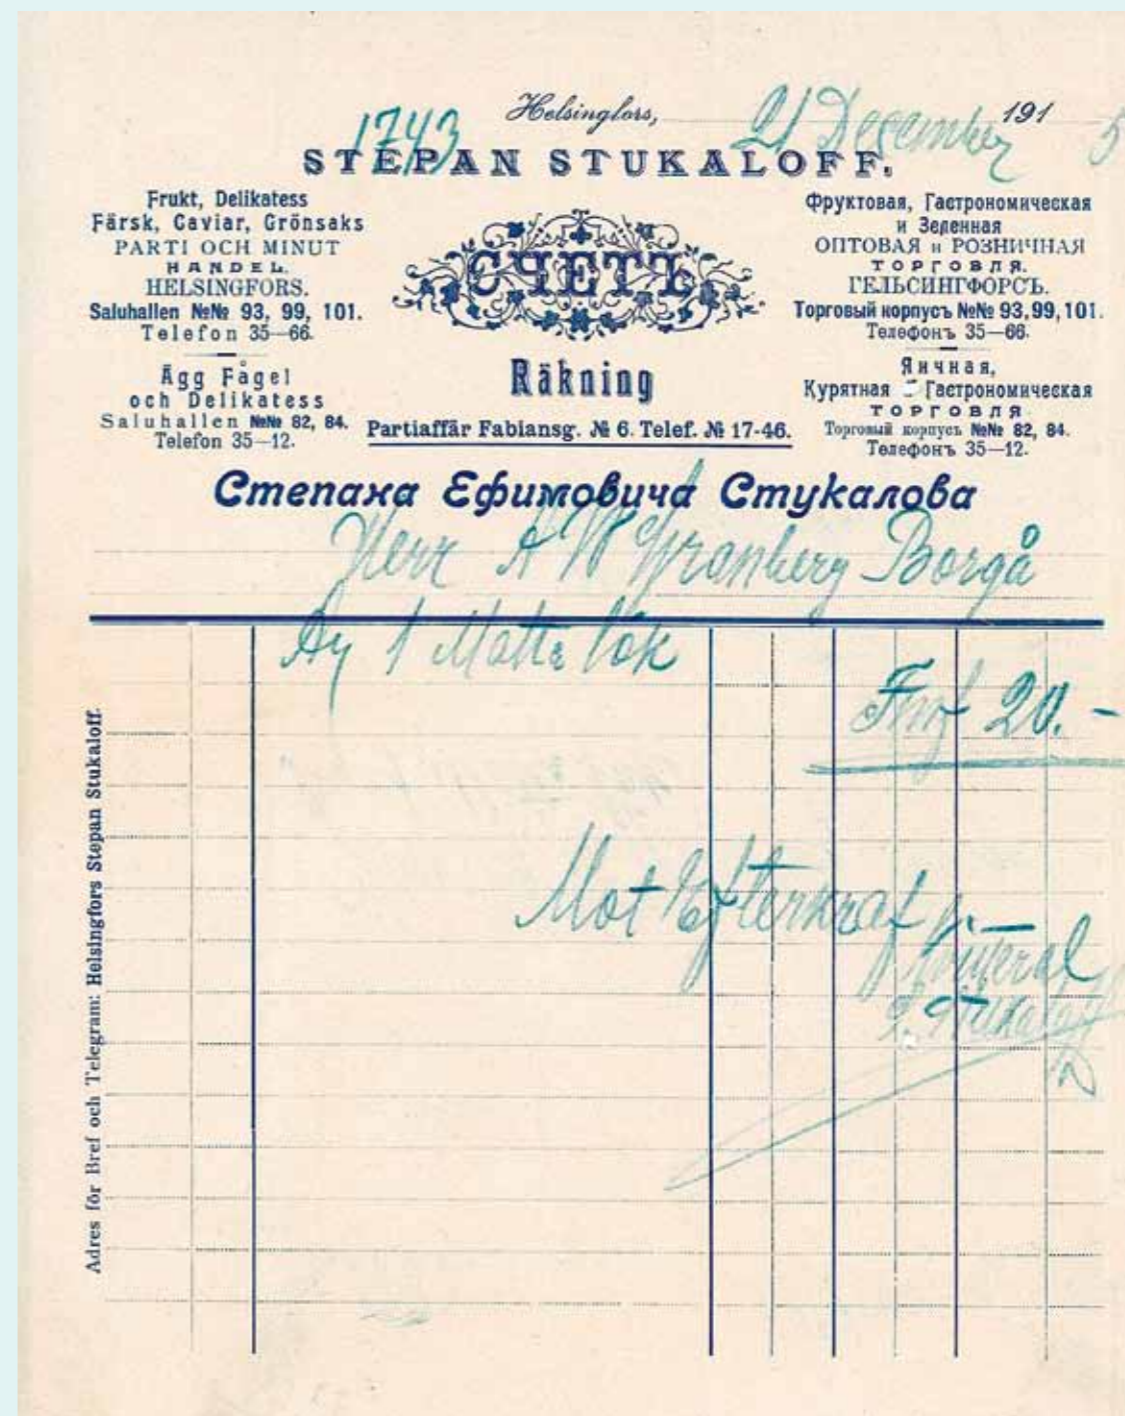 1743
Helsingfors, 21 December 1915
STEPAN STUKALOFF.
Frukt, Delikatess
Färsk, Caviar, Grönsaks
PARTI OCH MINUT
HANDEL.
HELSINGFORS.
Saluhallen №№ 93, 99, 101.
Telefon 35—66.
Ägg Fågel
och Delikatess
Saluhallen №№ 82, 84.
Telefon 35—12.
СЧЕТЪ
Räkning
Partiaffär Fabiansg. № 6. Telef. № 17-46.
Фруктовая, Гастрономическая
и Зеленная
ОПТОВАЯ и РОЗНИЧНАЯ
ТОРГОВЛЯ.
ГЕЛЬСИНГФОРСЪ.
Торговый корпусъ №№ 93, 99, 101.
Телефонъ 35—66.
Яичная,
Курятная Гастрономическая
ТОРГОВЛЯ
Торговый корпусъ №№ 82, 84.
Телефонъ 35—12.
Степана Ефимовича Стукалова
Herr A W Granberg Borgå
1 Matta
Fmf 20.-
Mot Efterkraf
Adres för Bref och Telegram: Helsingfors Stepan Stukaloff.